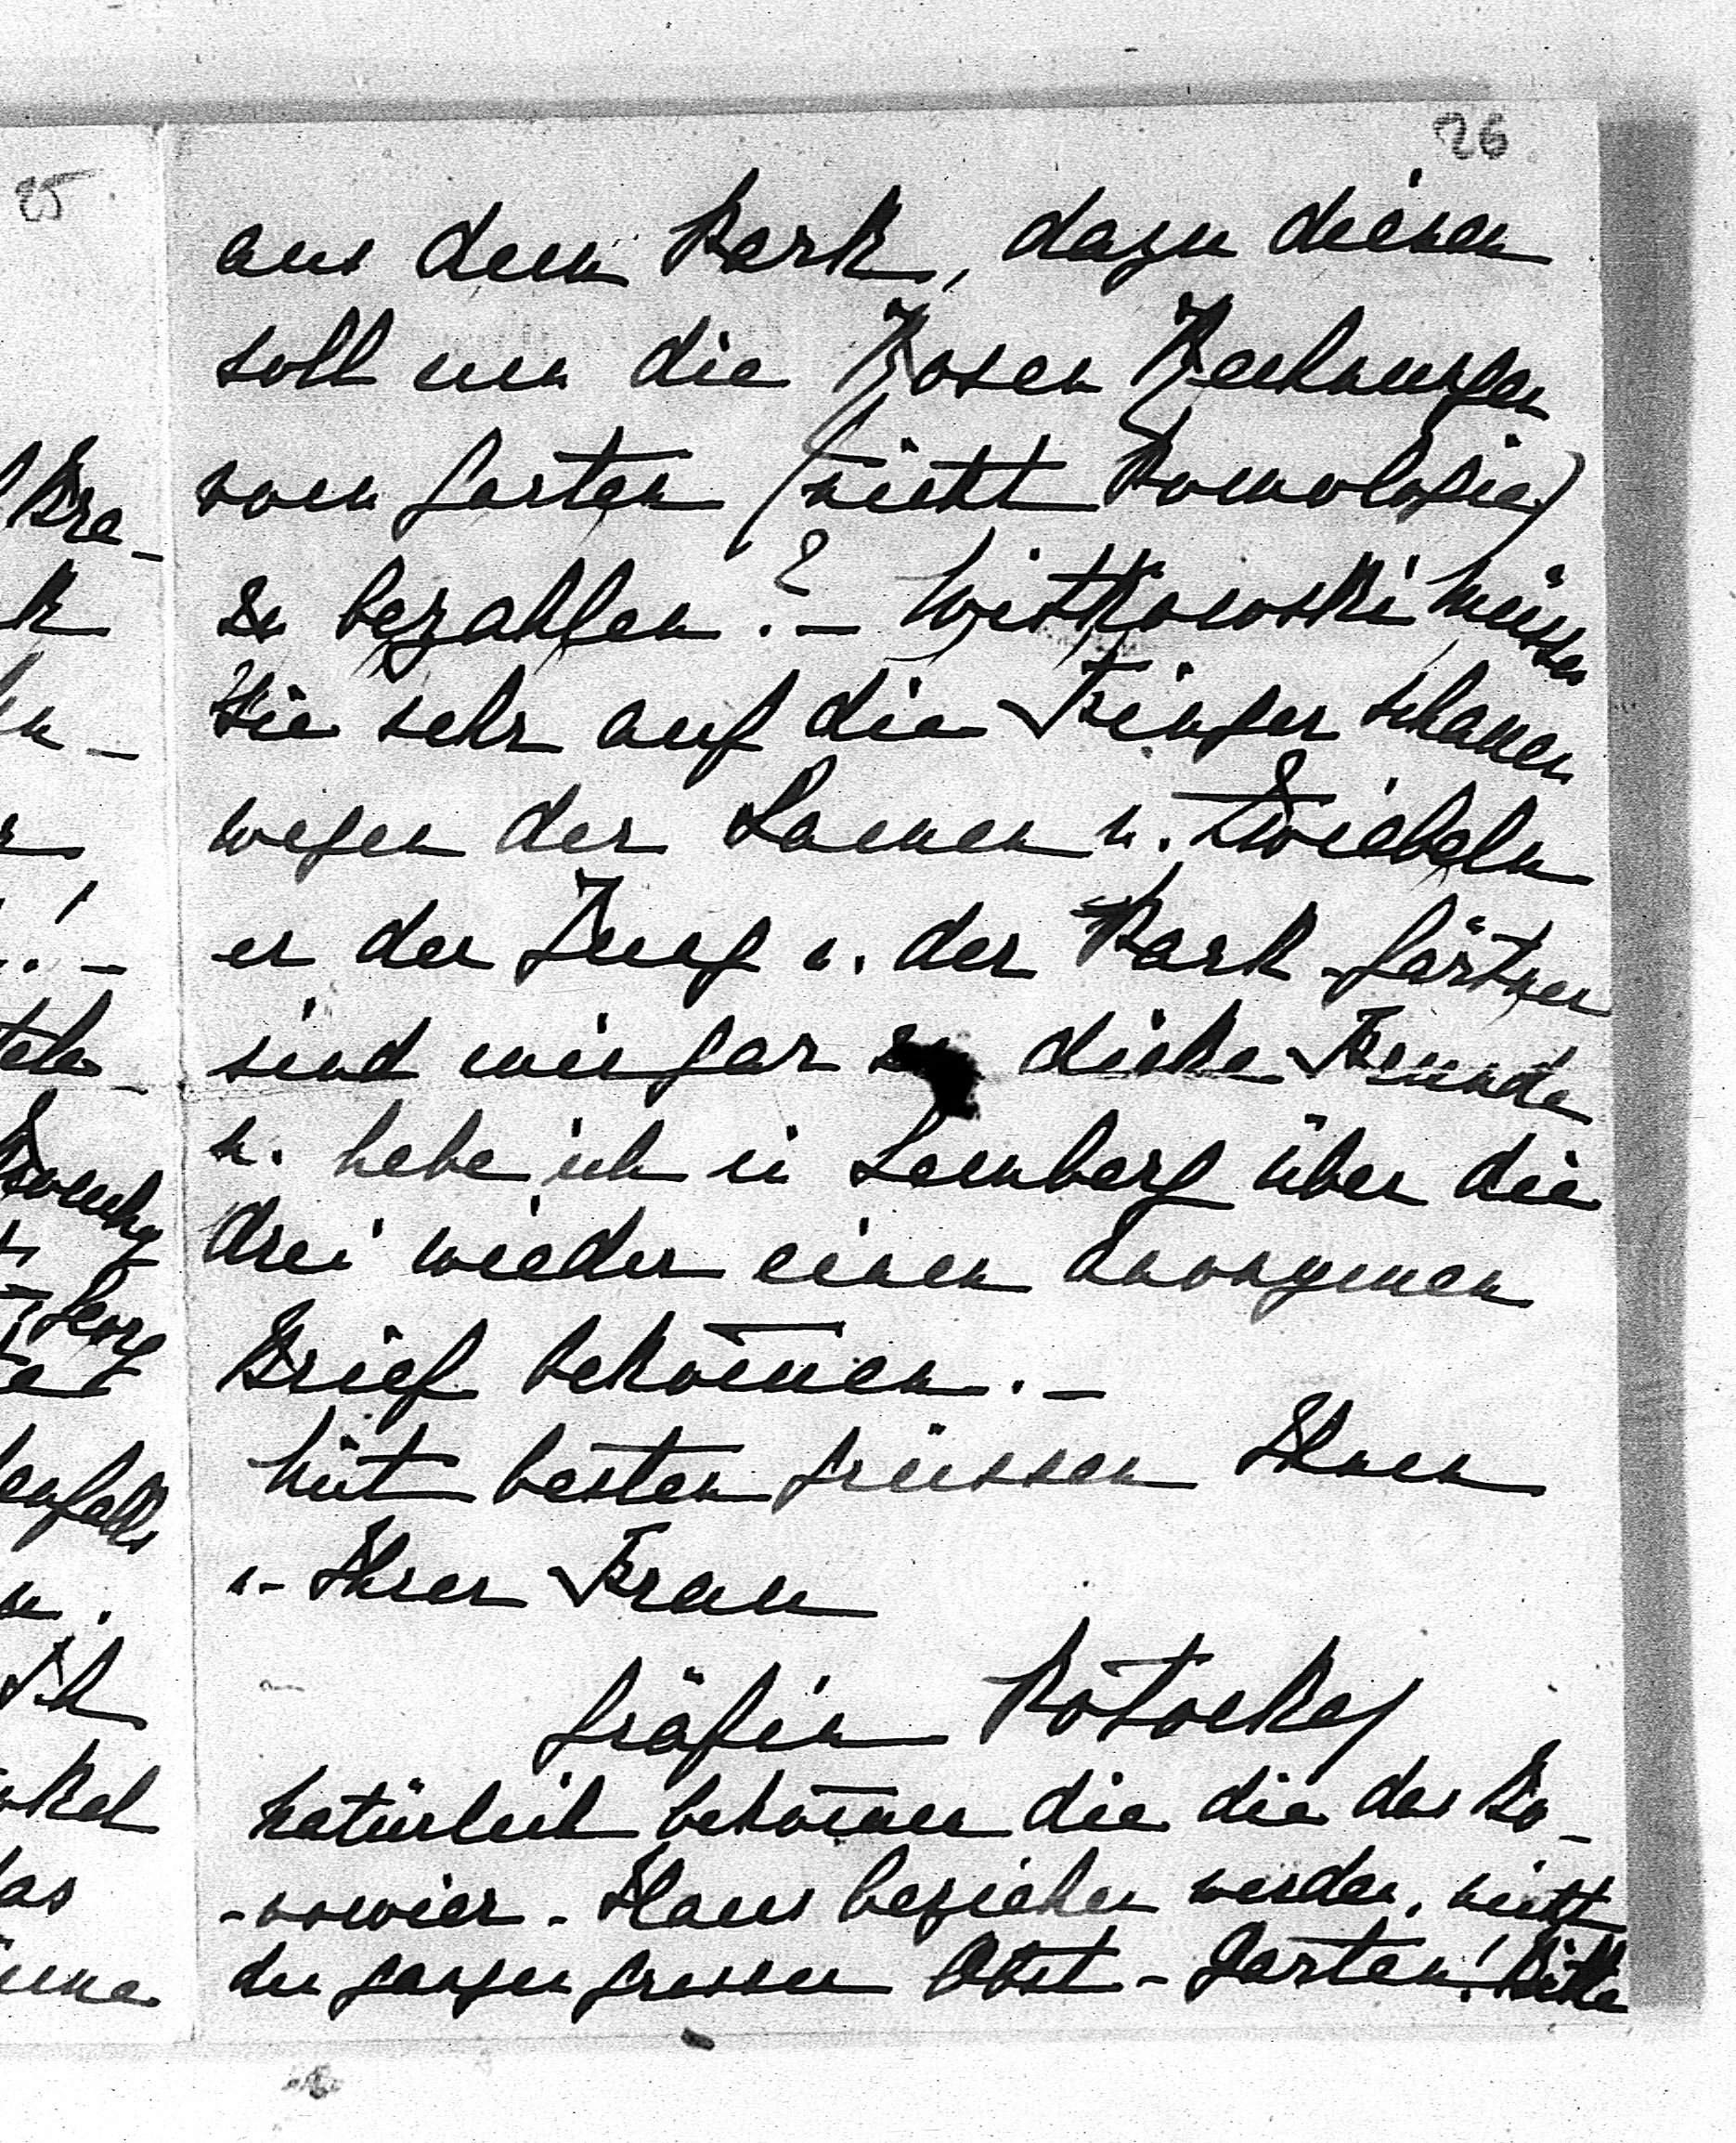 26
aus dem Park, dazu dienen
soll um die Rosen Rechnungen
vom Garten (nicht Pomologie)
zu bezahlen? – Witkowski müssen
Sie sehr auf die Finger schauen
wegen der Samen u. Zwiebeln
er der Jung u. der Park-Gärtner
sind mir gar zu dicke Freunde
u. habe ich in Lemberg über die
drei wieder einen anonymen
Brief bekom̄en. –
Mit besten Grüssen Ihnen
u. Ihrer Frau
Gräfin Potocka
Natürlich bekom̄en die die das Bo-
-rowier-Haus beziehen werden, nicht
den ganzen grossen Obst-Garten! Bitte
25
Bra-